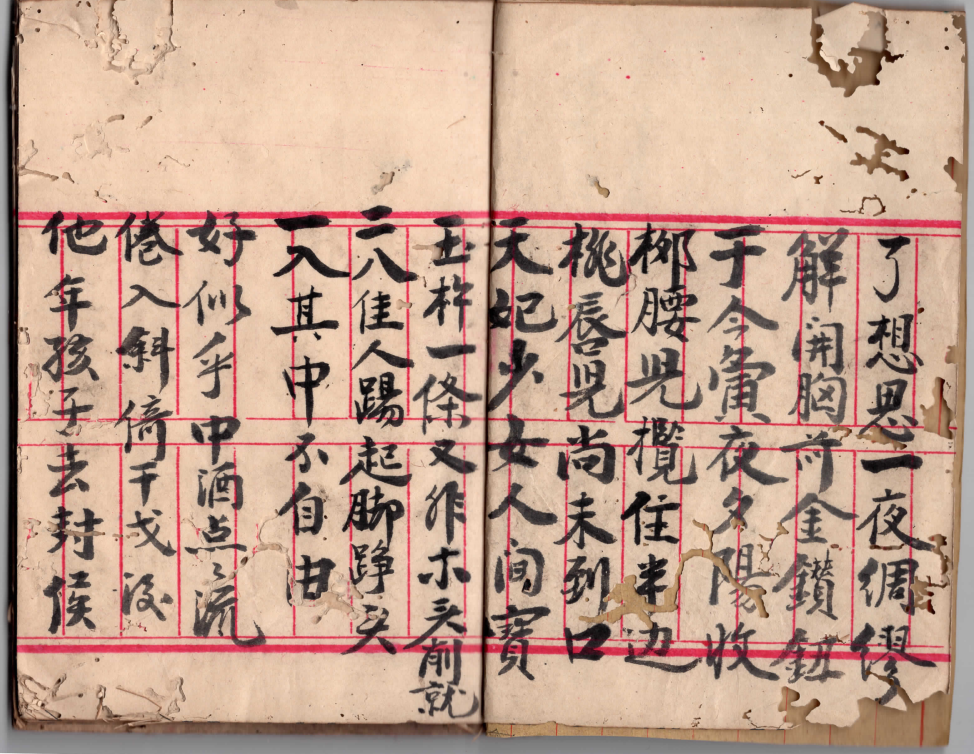 了想思一夜綢繆
解開胸前金鑚鈕
于今寅夜夕陽收
柳腰児攬住半边
桃唇児尚未到口
天妃少女人间寳
五杵一條又非木头削就
二八佳人踢起脚踭头
一入其中不自由
好似乎中酒点〻流
倦入斜倚干戈後
他年孩子去封侯